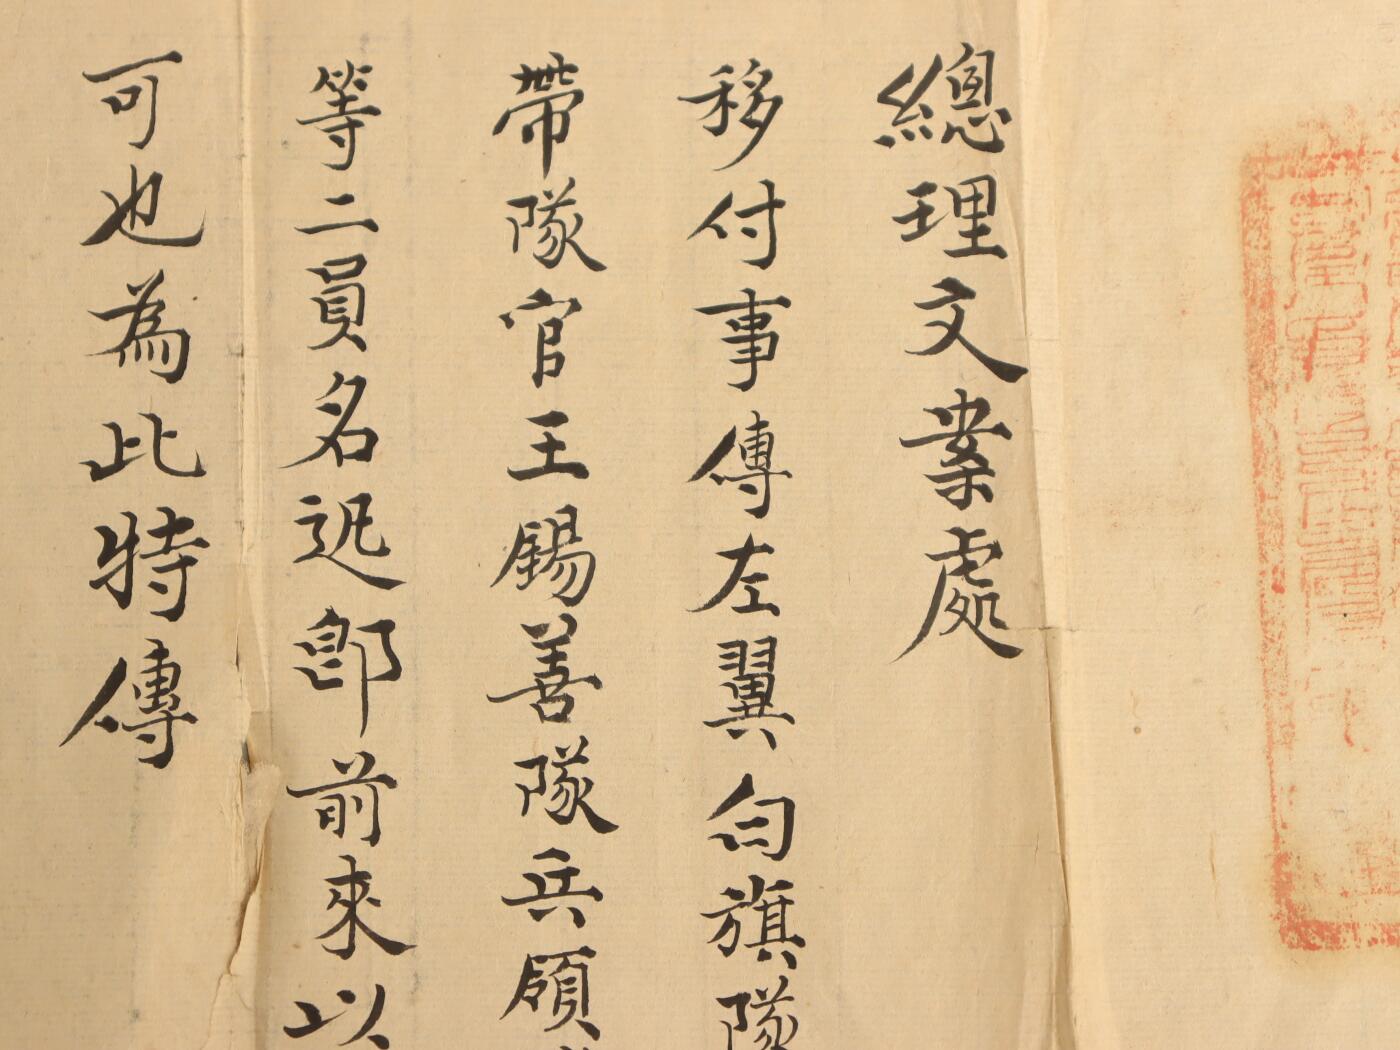 總理文案處
移付事傳左翼白旗隊
帶隊官王錫善隊兵領
等二員名迅即前來以
可也為此特傳